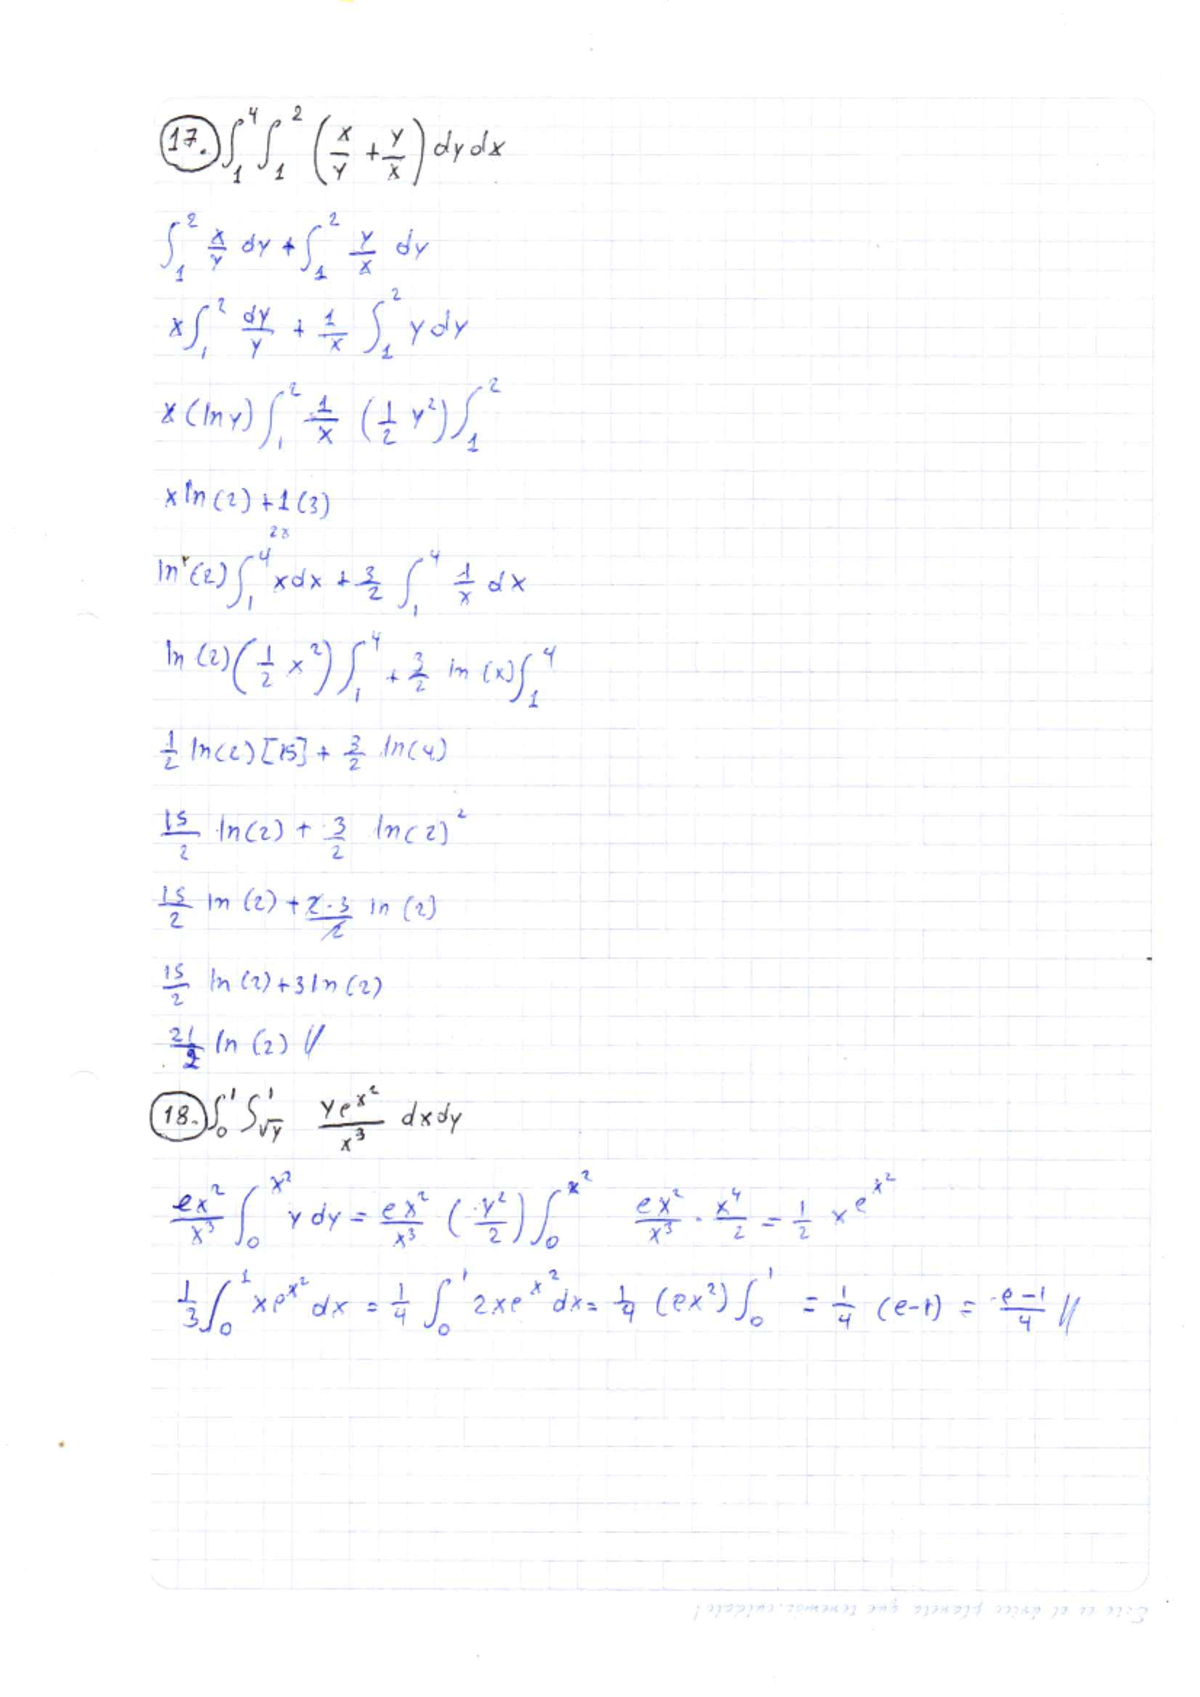 17. ∫₁⁴ ∫₁² (x/y + y/x) dy dx
∫₁² x/y dy + ∫₁² y/x dy
x∫₁² dy/y + 1/x ∫₁² y dy
x (ln y) ∫₁² 1/x (1/2 y²) ∫₁²
x ln (2) + 1 (3)
2x
ln (2) ∫₁⁴ x dx + 3/2 ∫₁⁴ 1/x dx
ln (2) (1/2 x²) ∫₁⁴ + 3/2 ln (x) ∫₁⁴
1/2 ln(2) [15] + 3/2 ln(4)
15/2 ln(2) + 3/2 ln(2)²
15/2 ln (2) + 2·3/2 ln (2)
15/2 ln (2) + 3 ln (2)
21/2 ln (2) //
18. ∫₀¹ ∫_√y¹ ye^x²/x³ dx dy
ex²/x³ ∫₀^x² y dy = ex²/x³ (y²/2) ∫₀^x² ex²/x³ · x⁴/2 = 1/2 x e^x²
1/3 ∫₀¹ x e^x² dx = 1/4 ∫₀¹ 2x e^x² dx = 1/4 (ex²) ∫₀¹ = 1/4 (e-1) = e-1/4 //
Este es el único planeta que tenemos, cuídalo!